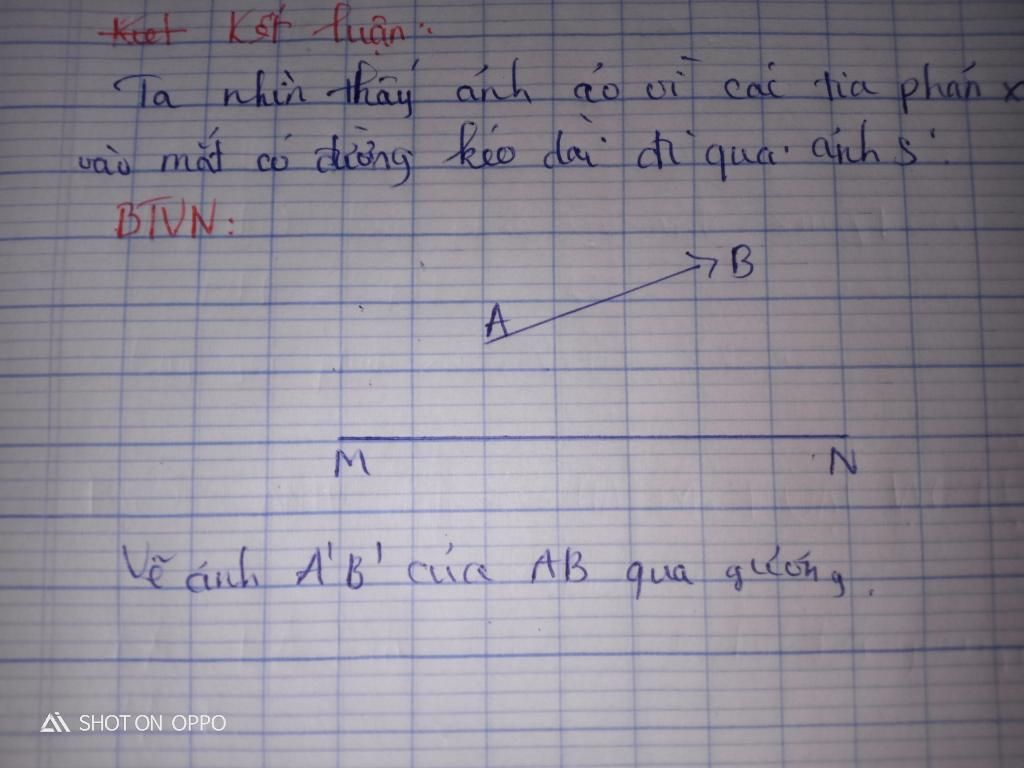 Kiet Kết luận:
Ta nhìn thấy ảnh ảo vì các tia phản x
vào mắt có đường kéo dài đi qua ảnh S'.
BTVN:
B
A
M N
Vẽ ảnh A'B' của AB qua gương.
SHOT ON OPPO